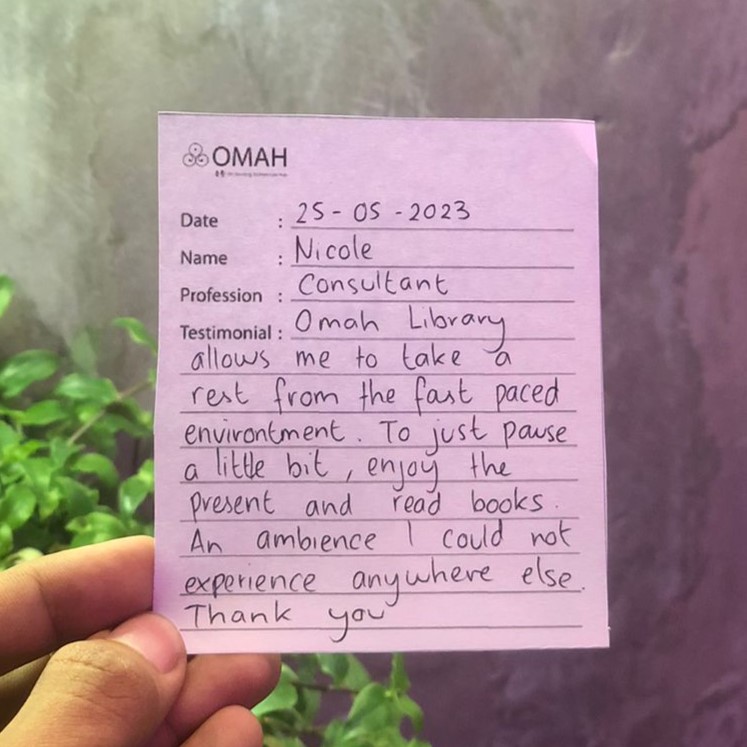 OMAH
Date : 25-05-2023
Name : Nicole
Profession : Consultant
Testimonial : Omah Library
allows me to take a
rest from the fast paced
environtment. To just pause
a little bit, enjoy the
present and read books.
An ambience I could not
experience anywhere else.
Thank you